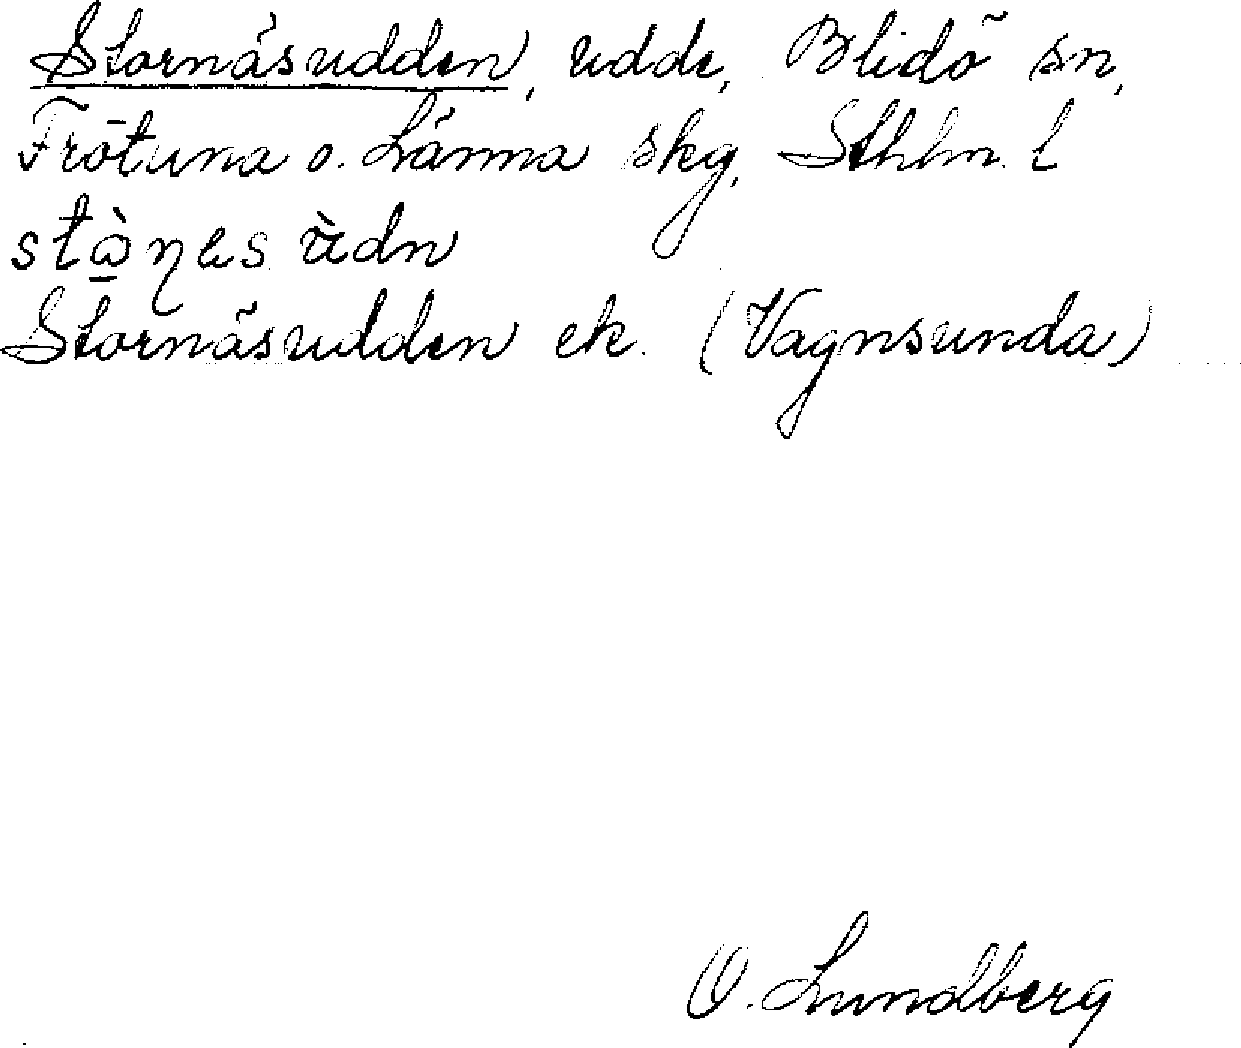 Stornäsudden, udde, Blidö sn,
Frötuna o. Länna skg, Sthlm. l
Stornäsudden ek. (Vagnsunda)
O. Lundberg